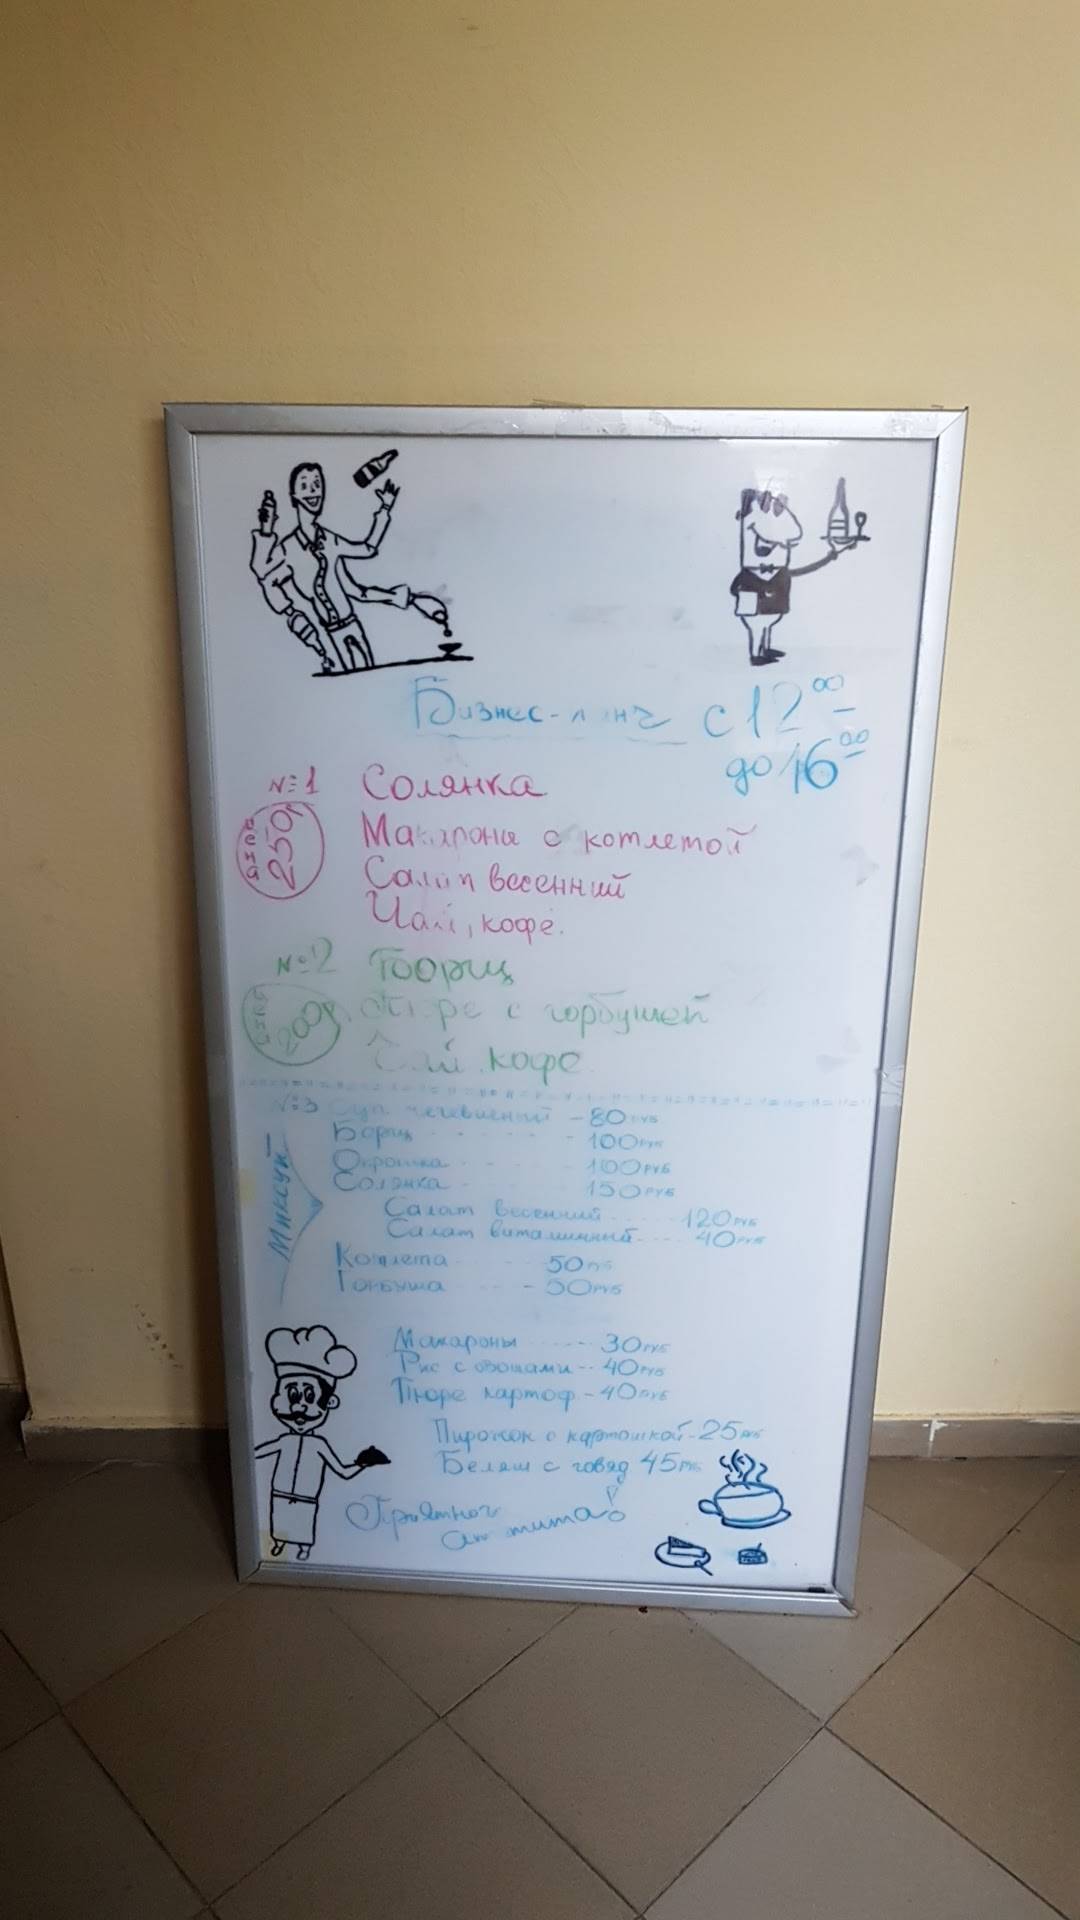 Бизнес-ланч с 12 00
до 16 00
№1 Солянка
цена 250р
Макароны с котлетой
Салат весенний
Чай, кофе.
№2 Борщ
цена 200р
Пюре с горбушей
Чай, кофе
№3 Суп чечевичный - 80 руб
Борщ - - - - - 100 руб
Окрошка - - - - 100 руб
Солянка - - - 150 руб
Салат весенний ..... 120 руб
Салат витаминный ---- 40 руб
Котлета - - - 50 руб
Горбуша - - - 50 руб
Макароны ------ 30 руб
Рис с овощами -- 40 руб
Пюре картоф - 40 руб
Пирожок с картошкой - 25 руб
Беляш с говяд 45 руб
Приятного
аппетита!